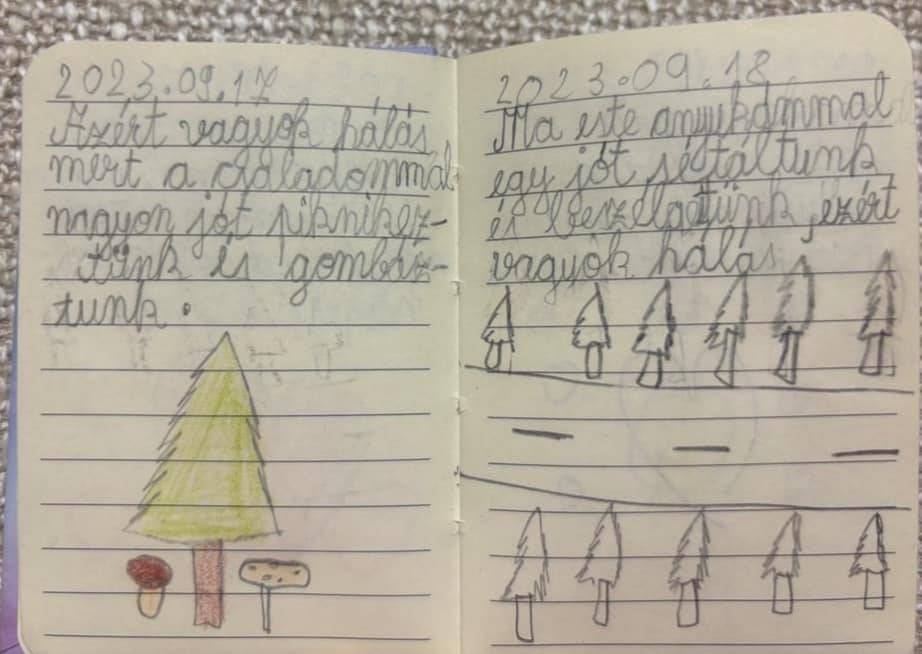 2023.09.17
Azért vagyok hálás
mert a családommal
nagyon jót piknikez-
tünk és gombáz-
tunk.
2023.09.18
Ma este anyukámmal
egy jót sétáltunk
és beszélgettünk, ezért
vagyok hálás